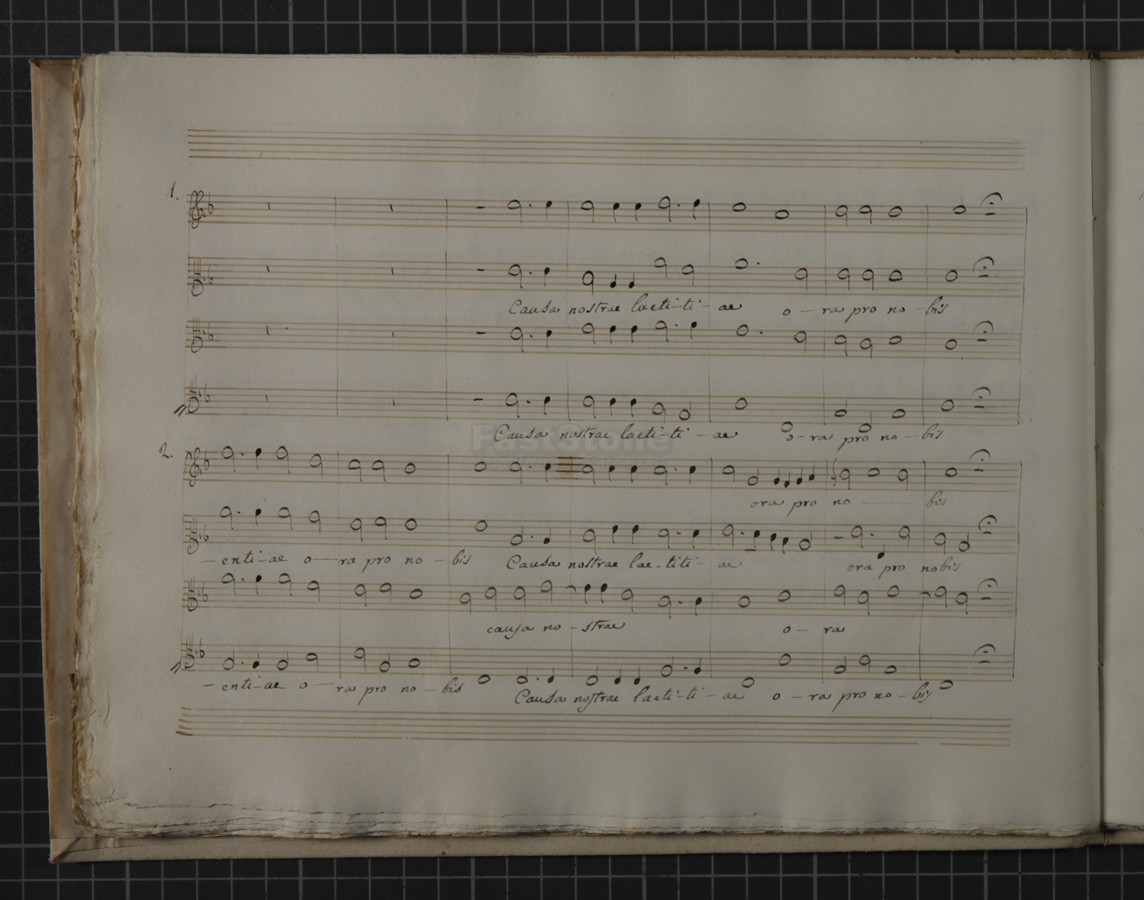 1.
Causa nostrae laeti-ti-ae o-ra pro no-bis
Causa nostrae laeti-ti-ae o-ra pro no-bis
FastStone
2.
ora pro no bis
-enti-ae o-ra pro no-bis Causa nostrae lae-titi-ae ora pro nobis
causa no-strae o-ra
-enti-ae o-ra pro no-bis Causa nostrae laeti-ti-ae o-ra pro no-bis